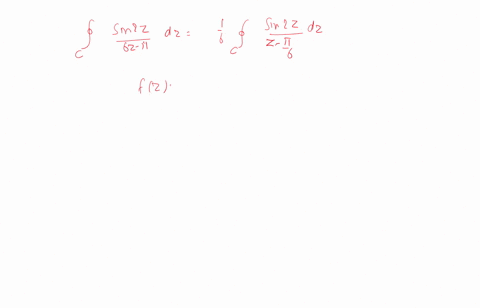 ∮_C sin2z/(6z-π) dz = 1/6 ∮_C sin2z/(z-π/6) dz
f(z):